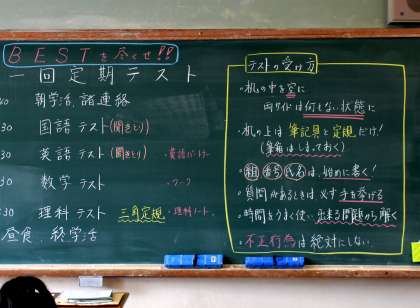 BESTを尽くせ!!
一回定期テスト
40 朝学活、諸連絡
30 国語テスト(聞きとり)
30 英語テスト(聞きとり) ・英語
数学テスト ・ワーク
30 理科テスト 三角定規 ・理科ノート
昼食、終学活
テストの受け方
・机の中を空に
両サイドは何もない状態に
・机の上は筆記具と定規だけ!
(筆箱はしまっておく)
・組番号氏名は始めに書く!
・質問があるときは必ず手を挙げる
・時間をうまく使い出来る問題から解く
・不正行為は絶対にしない